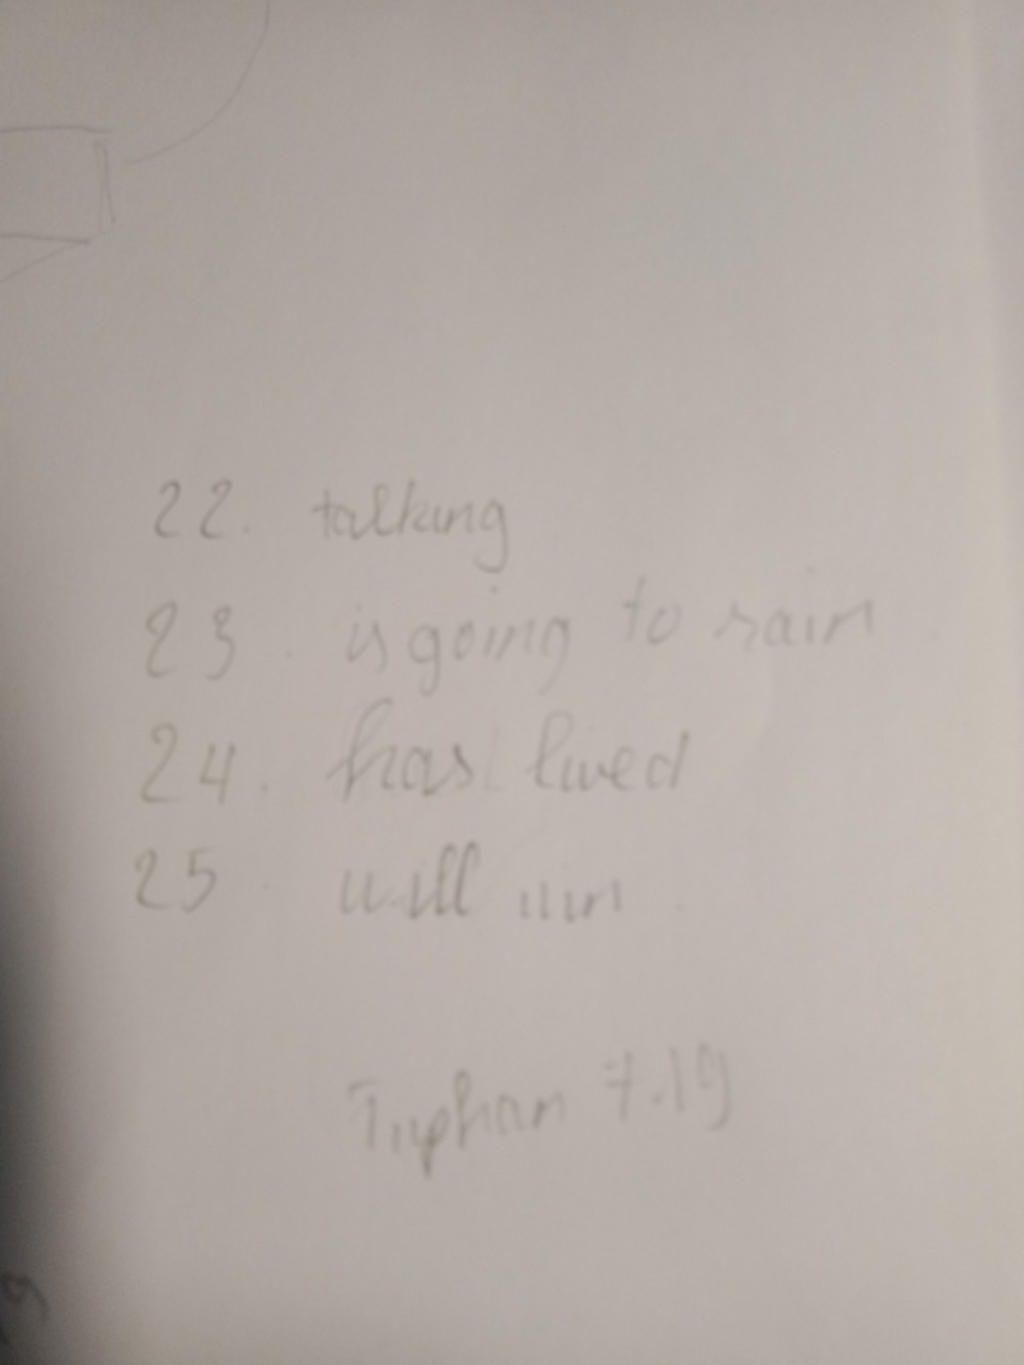 22. talking
23. is going to rain
24. has lived
25. will win.
7.19